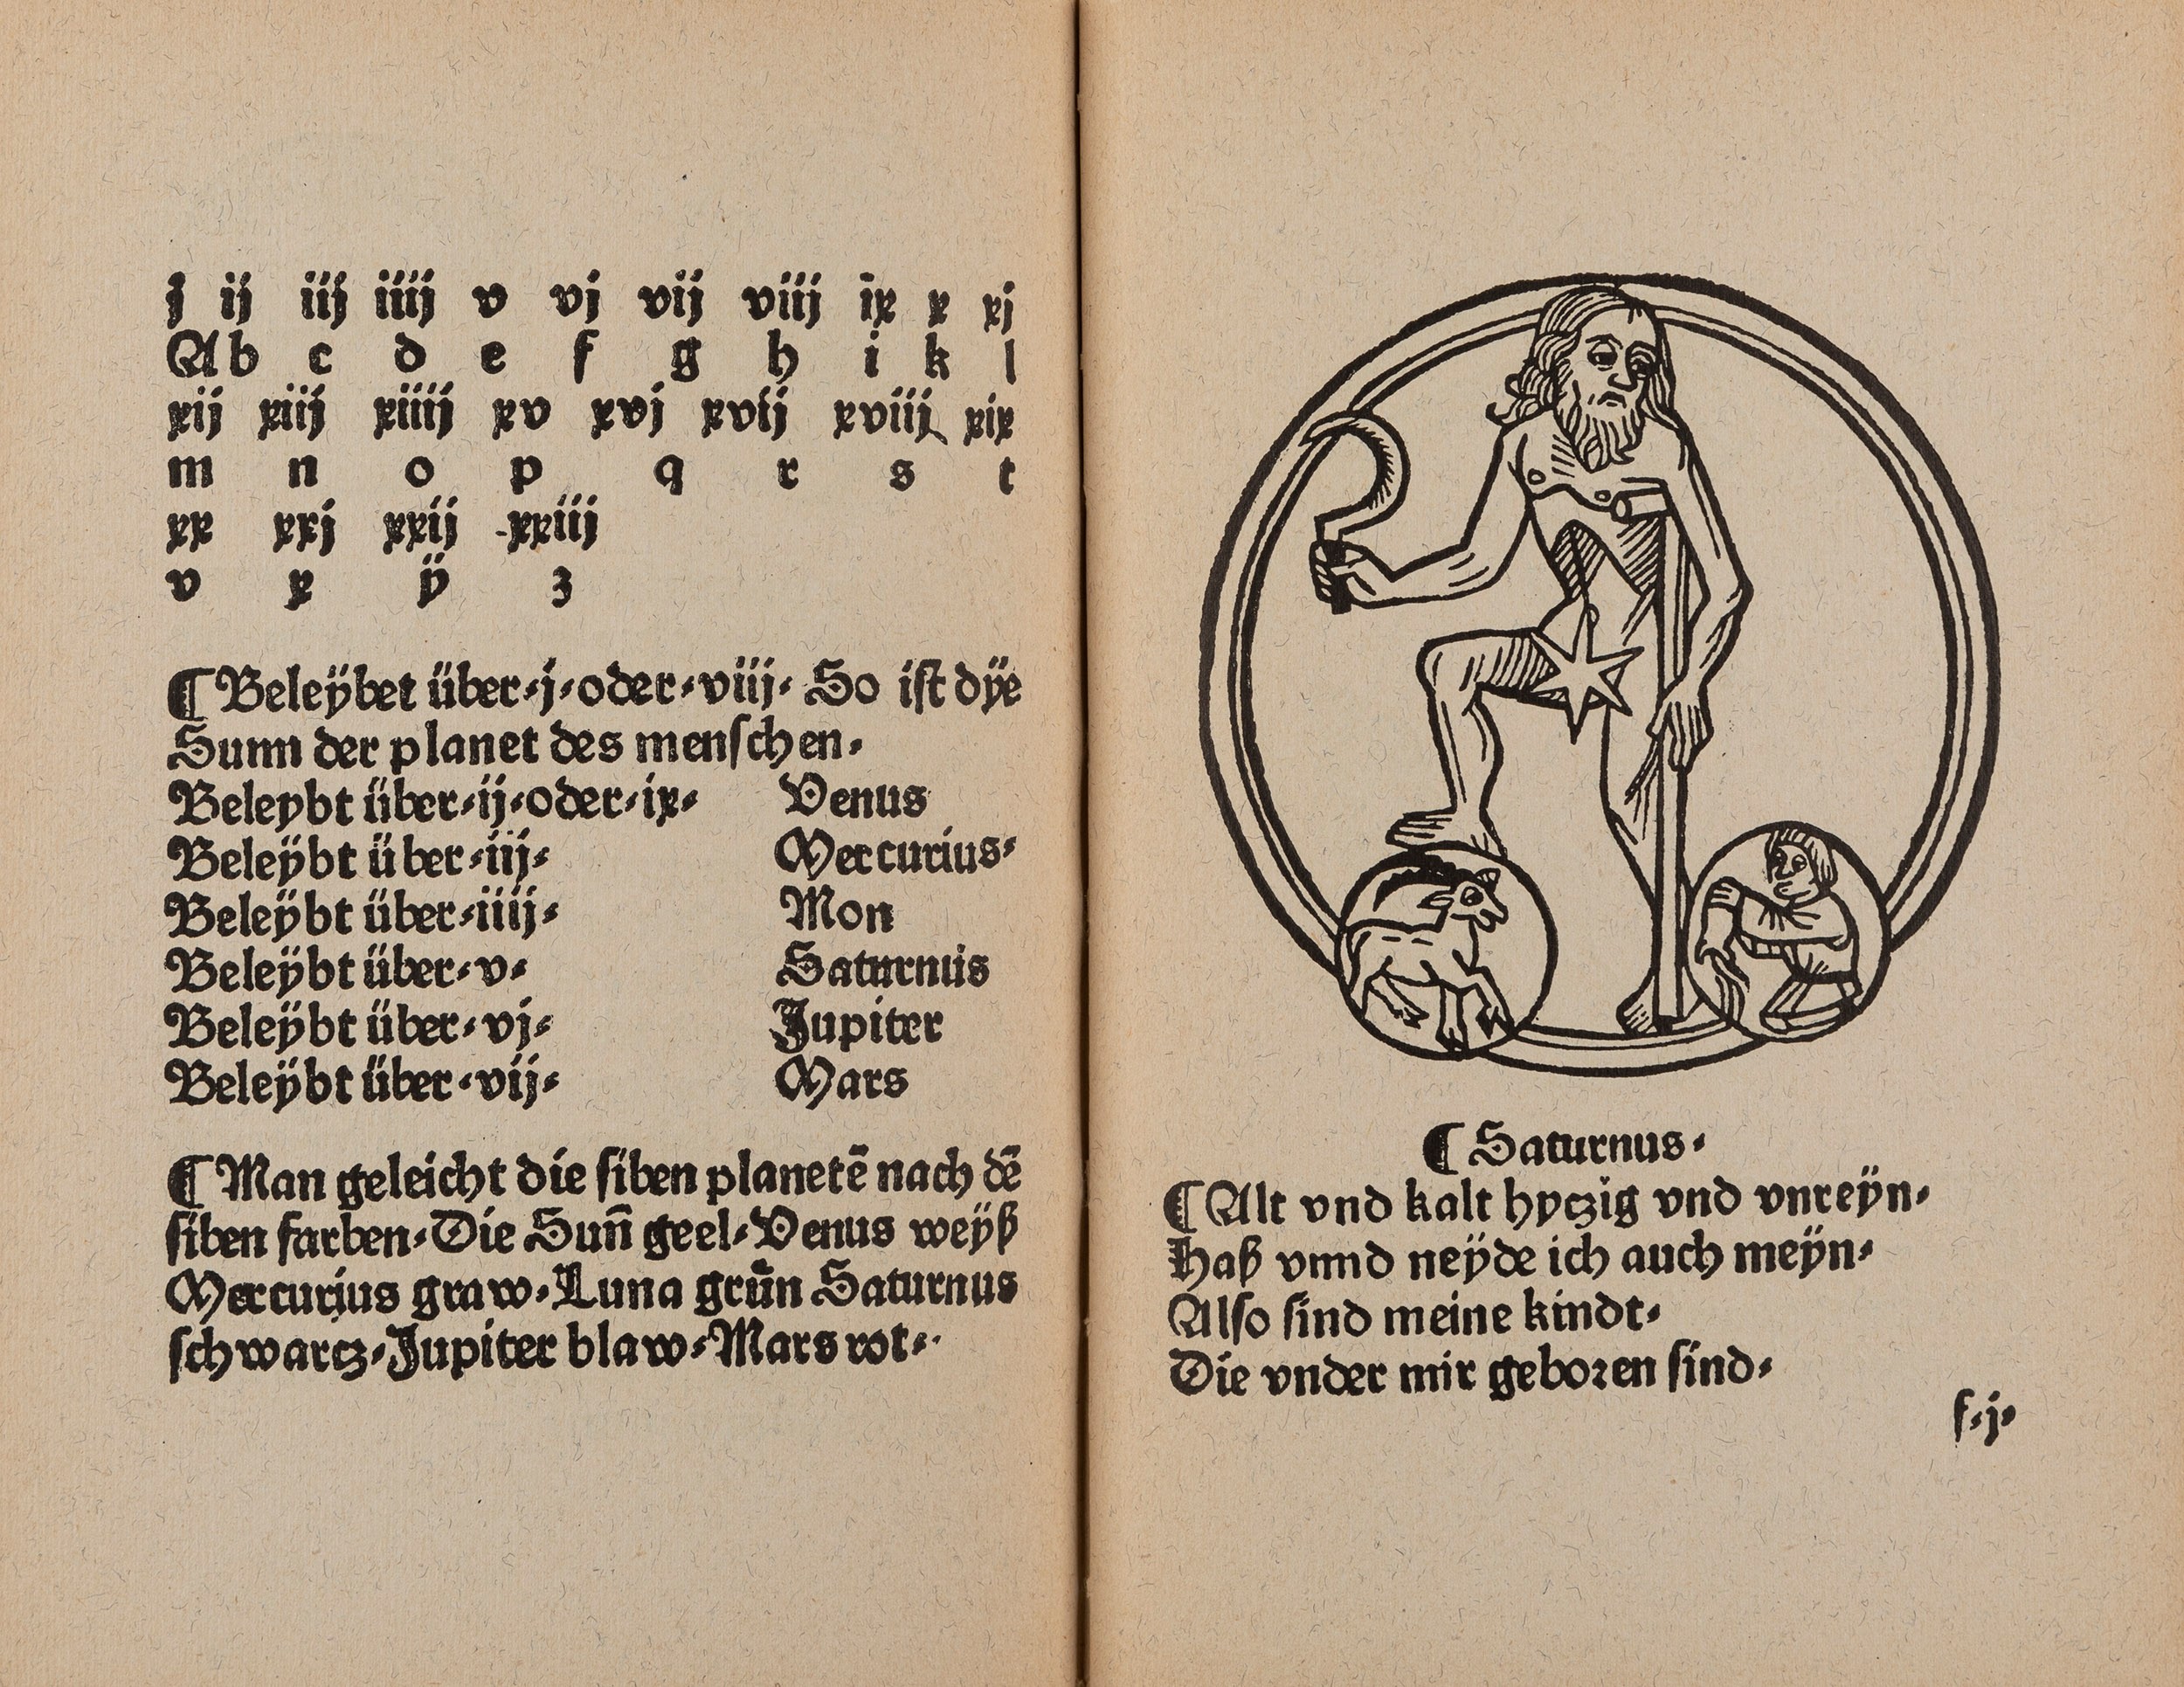 j ij iij iiij v vj vij viij ix x xj
A b c d e f g h i k l
xij xiij xiiij xv xvj xvij xviij xix
m n o p q r s t
xx xxj xxij xxiij
v x ÿ z
¶ Beleÿbet über·j·oder·viij· So iſt dÿe
Sunn der planet des menſchen·
Beleybt über·ij·oder·ix· Venus
Beleÿbt über·iij· Mercurius·
Beleÿbt über·iiij· Mon
Beleÿbt über·v· Saturnus
Beleÿbt über·vj· Jupiter
Beleÿbt über·vij· Mars
¶ Man geleicht die ſiben planetē nach dē
ſiben farben·Die Suñ geel·Venus weÿß
Mercurius graw·Luna grün Saturnus
ſchwarcz·Jupiter blaw·Mars rot··
¶ Saturnus·
¶ Alt vnd kalt hyczig vnd vnreÿn·
Haß vnnd neÿde ich auch meÿn·
Alſo ſind meine kindt·
Die vnder mir geboꝛen ſind·
f·j·